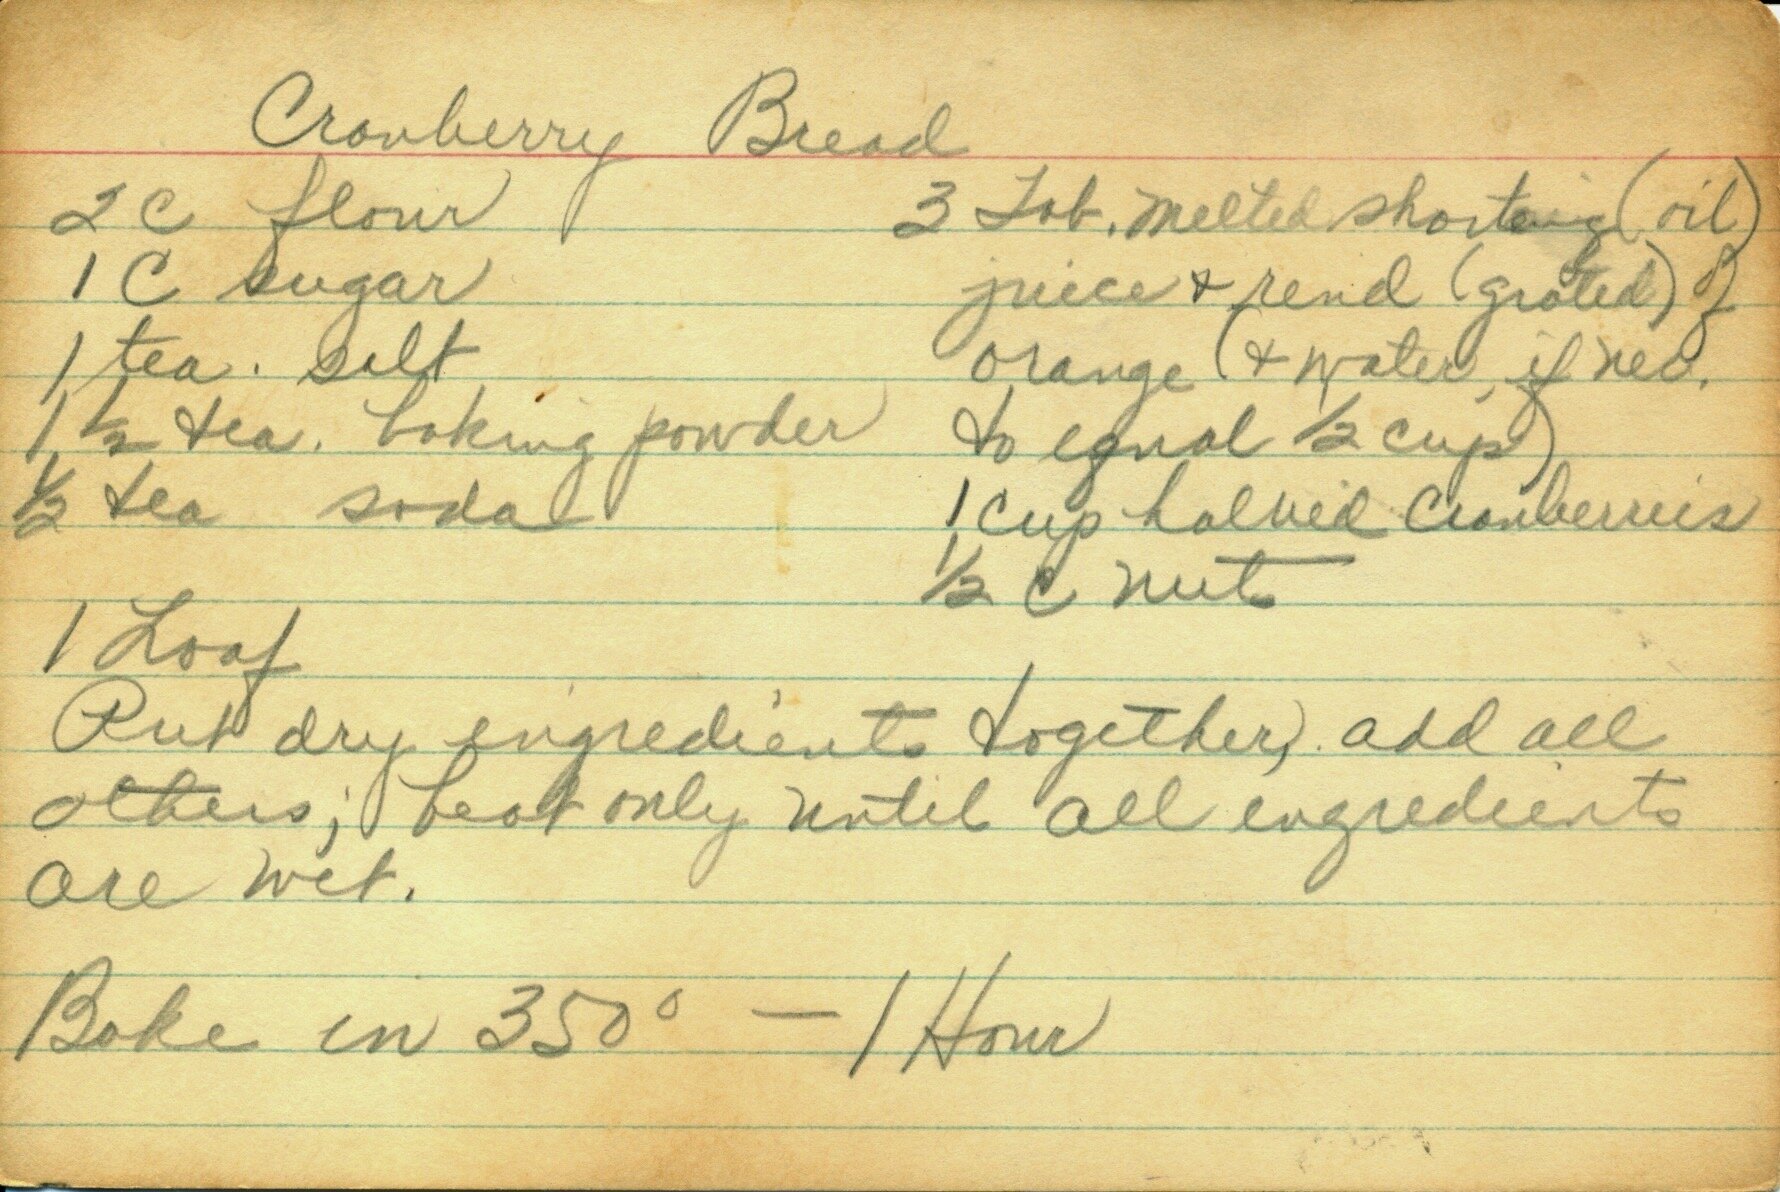 Cranberry Bread
2 C flour
1 C sugar
1 tea. salt
1 1/2 tea. baking powder
1/2 tea soda
3 Tab. melted shortening (oil)
juice & rend (grated) of
orange (& water, if nec.
to equal 1/2 cup)
1 cup halved Cranberries
1/2 C nuts
1 Loaf
Put dry ingredients together, add all
others; beat only until all ingredients
are wet.
Bake in 350° — 1 Hour